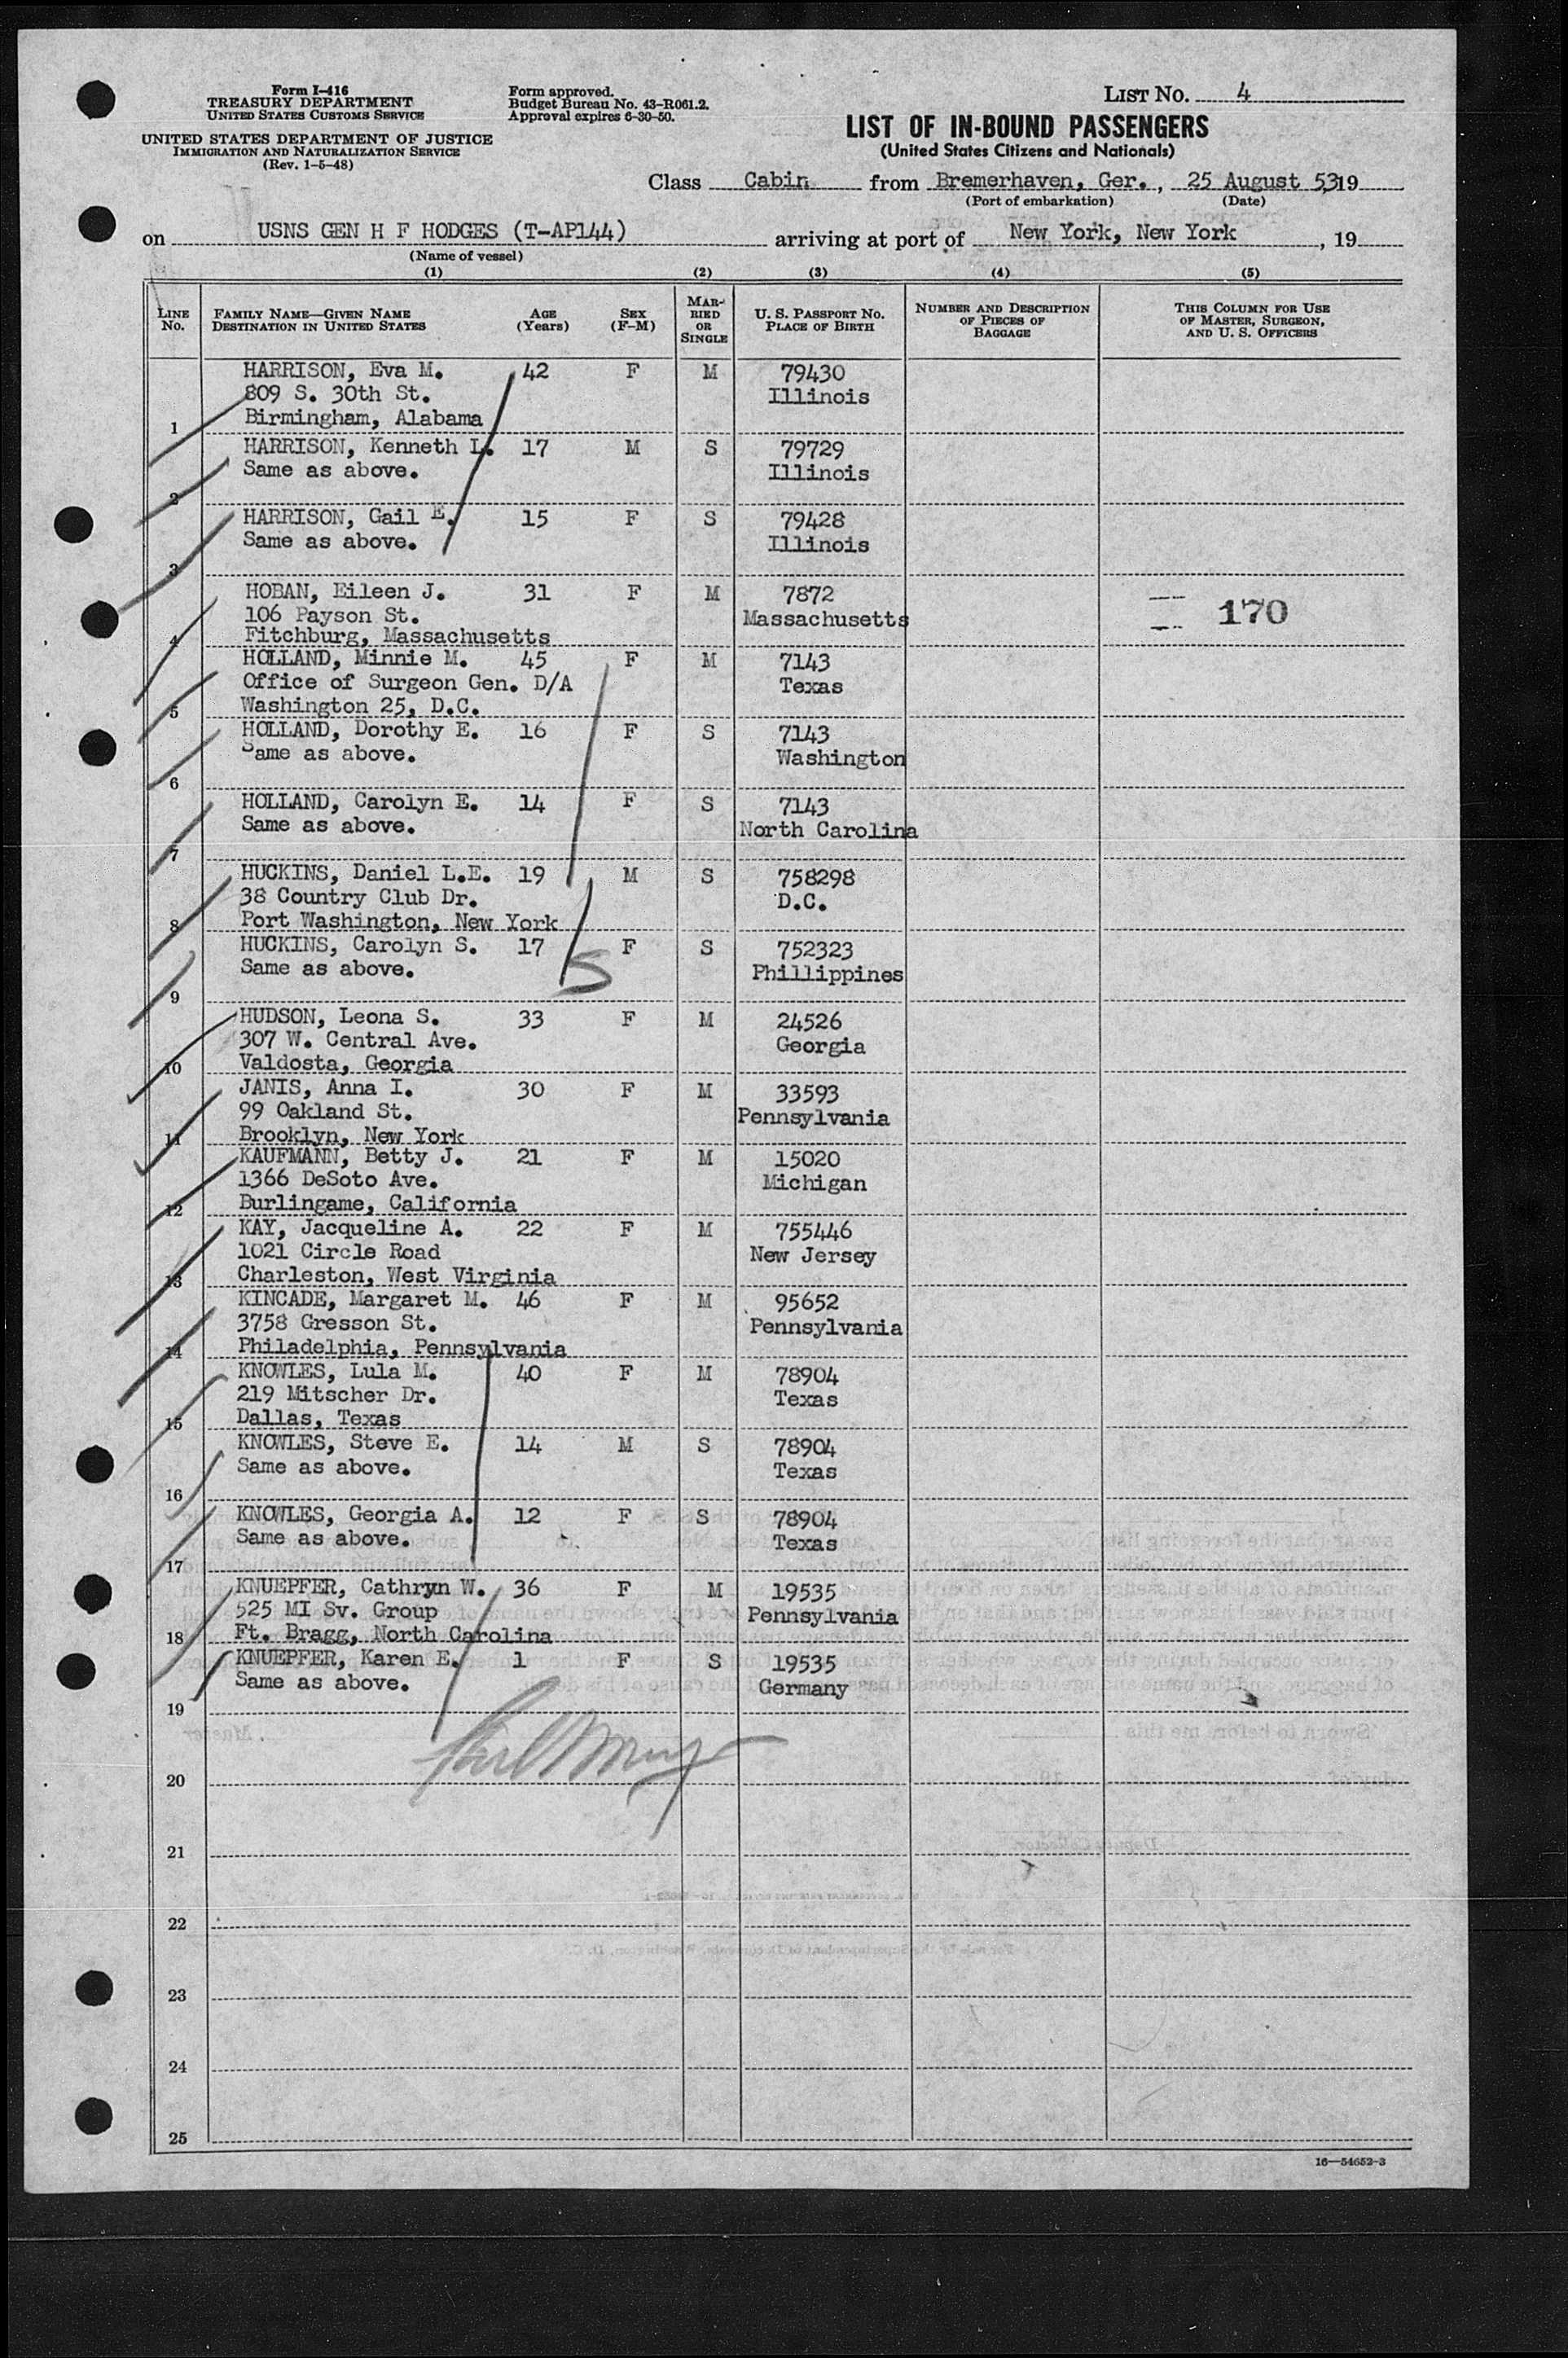 Form I-416
TREASURY DEPARTMENT
UNITED STATES CUSTOMS SERVICE
UNITED STATES DEPARTMENT OF JUSTICE
IMMIGRATION AND NATURALIZATION SERVICE
(Rev. 1-5-48)
Form approved.
Budget Bureau No. 43-R061.2.
Approval expires 6-30-50.
LIST NO. 4
LIST OF IN-BOUND PASSENGERS
(United States Citizens and Nationals)
Class Cabin from Bremerhaven, Ger., 25 August 5319
(Port of embarkation) (Date)
on USNS GEN H F HODGES (T-AP144) arriving at port of New York, New York, 19
(Name of vessel)
(1) (2) (3) (4) (5)
LINE No. FAMILY NAME—GIVEN NAME DESTINATION IN UNITED STATES AGE (Years) SEX (F-M) MARRIED OR SINGLE U. S. PASSPORT NO. PLACE OF BIRTH NUMBER AND DESCRIPTION OF PIECES OF BAGGAGE THIS COLUMN FOR USE OF MASTER, SURGEON, AND U. S. OFFICERS
HARRISON, Eva M. 42 F M 79430
809 S. 30th St. Illinois
1 Birmingham, Alabama
HARRISON, Kenneth L. 17 M S 79729
Same as above. Illinois
2
HARRISON, Gail E. 15 F S 79428
Same as above. Illinois
3
HOBAN, Eileen J. 31 F M 7872
106 Payson St. Massachusetts 170
4 Fitchburg, Massachusetts
HOLLAND, Minnie M. 45 F M 7143
Office of Surgeon Gen. D/A Texas
5 Washington 25, D.C.
HOLLAND, Dorothy E. 16 F S 7143
Same as above. Washington
6
HOLLAND, Carolyn E. 14 F S 7143
Same as above. North Carolina
7
HUCKINS, Daniel L.E. 19 M S 758298
38 Country Club Dr. D.C.
8 Port Washington, New York
HUCKINS, Carolyn S. 17 F S 752323
Same as above. S Phillippines
9
HUDSON, Leona S. 33 F M 24526
307 W. Central Ave. Georgia
10 Valdosta, Georgia
JANIS, Anna I. 30 F M 33593
99 Oakland St. Pennsylvania
11 Brooklyn, New York
KAUFMANN, Betty J. 21 F M 15020
1366 DeSoto Ave. Michigan
12 Burlingame, California
KAY, Jacqueline A. 22 F M 755446
1021 Circle Road New Jersey
13 Charleston, West Virginia
KINCADE, Margaret M. 46 F M 95652
3758 Gresson St. Pennsylvania
14 Philadelphia, Pennsylvania
KNOWLES, Lula M. 40 F M 78904
219 Mitscher Dr. Texas
15 Dallas, Texas
KNOWLES, Steve E. 14 M S 78904
Same as above. Texas
16
KNOWLES, Georgia A. 12 F S 78904
Same as above. Texas
17
KNUEPFER, Cathryn W. 36 F M 19535
525 MI Sv. Group Pennsylvania
18 Ft. Bragg, North Carolina
KNUEPFER, Karen E. 1 F S 19535
Same as above. Germany
19
20
21
22
23
24
25
16—54652-3